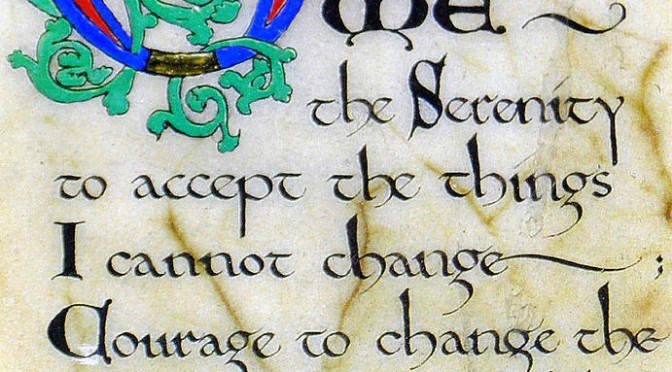 me
the Serenity
to accept the things
I cannot change ;
Courage to change the